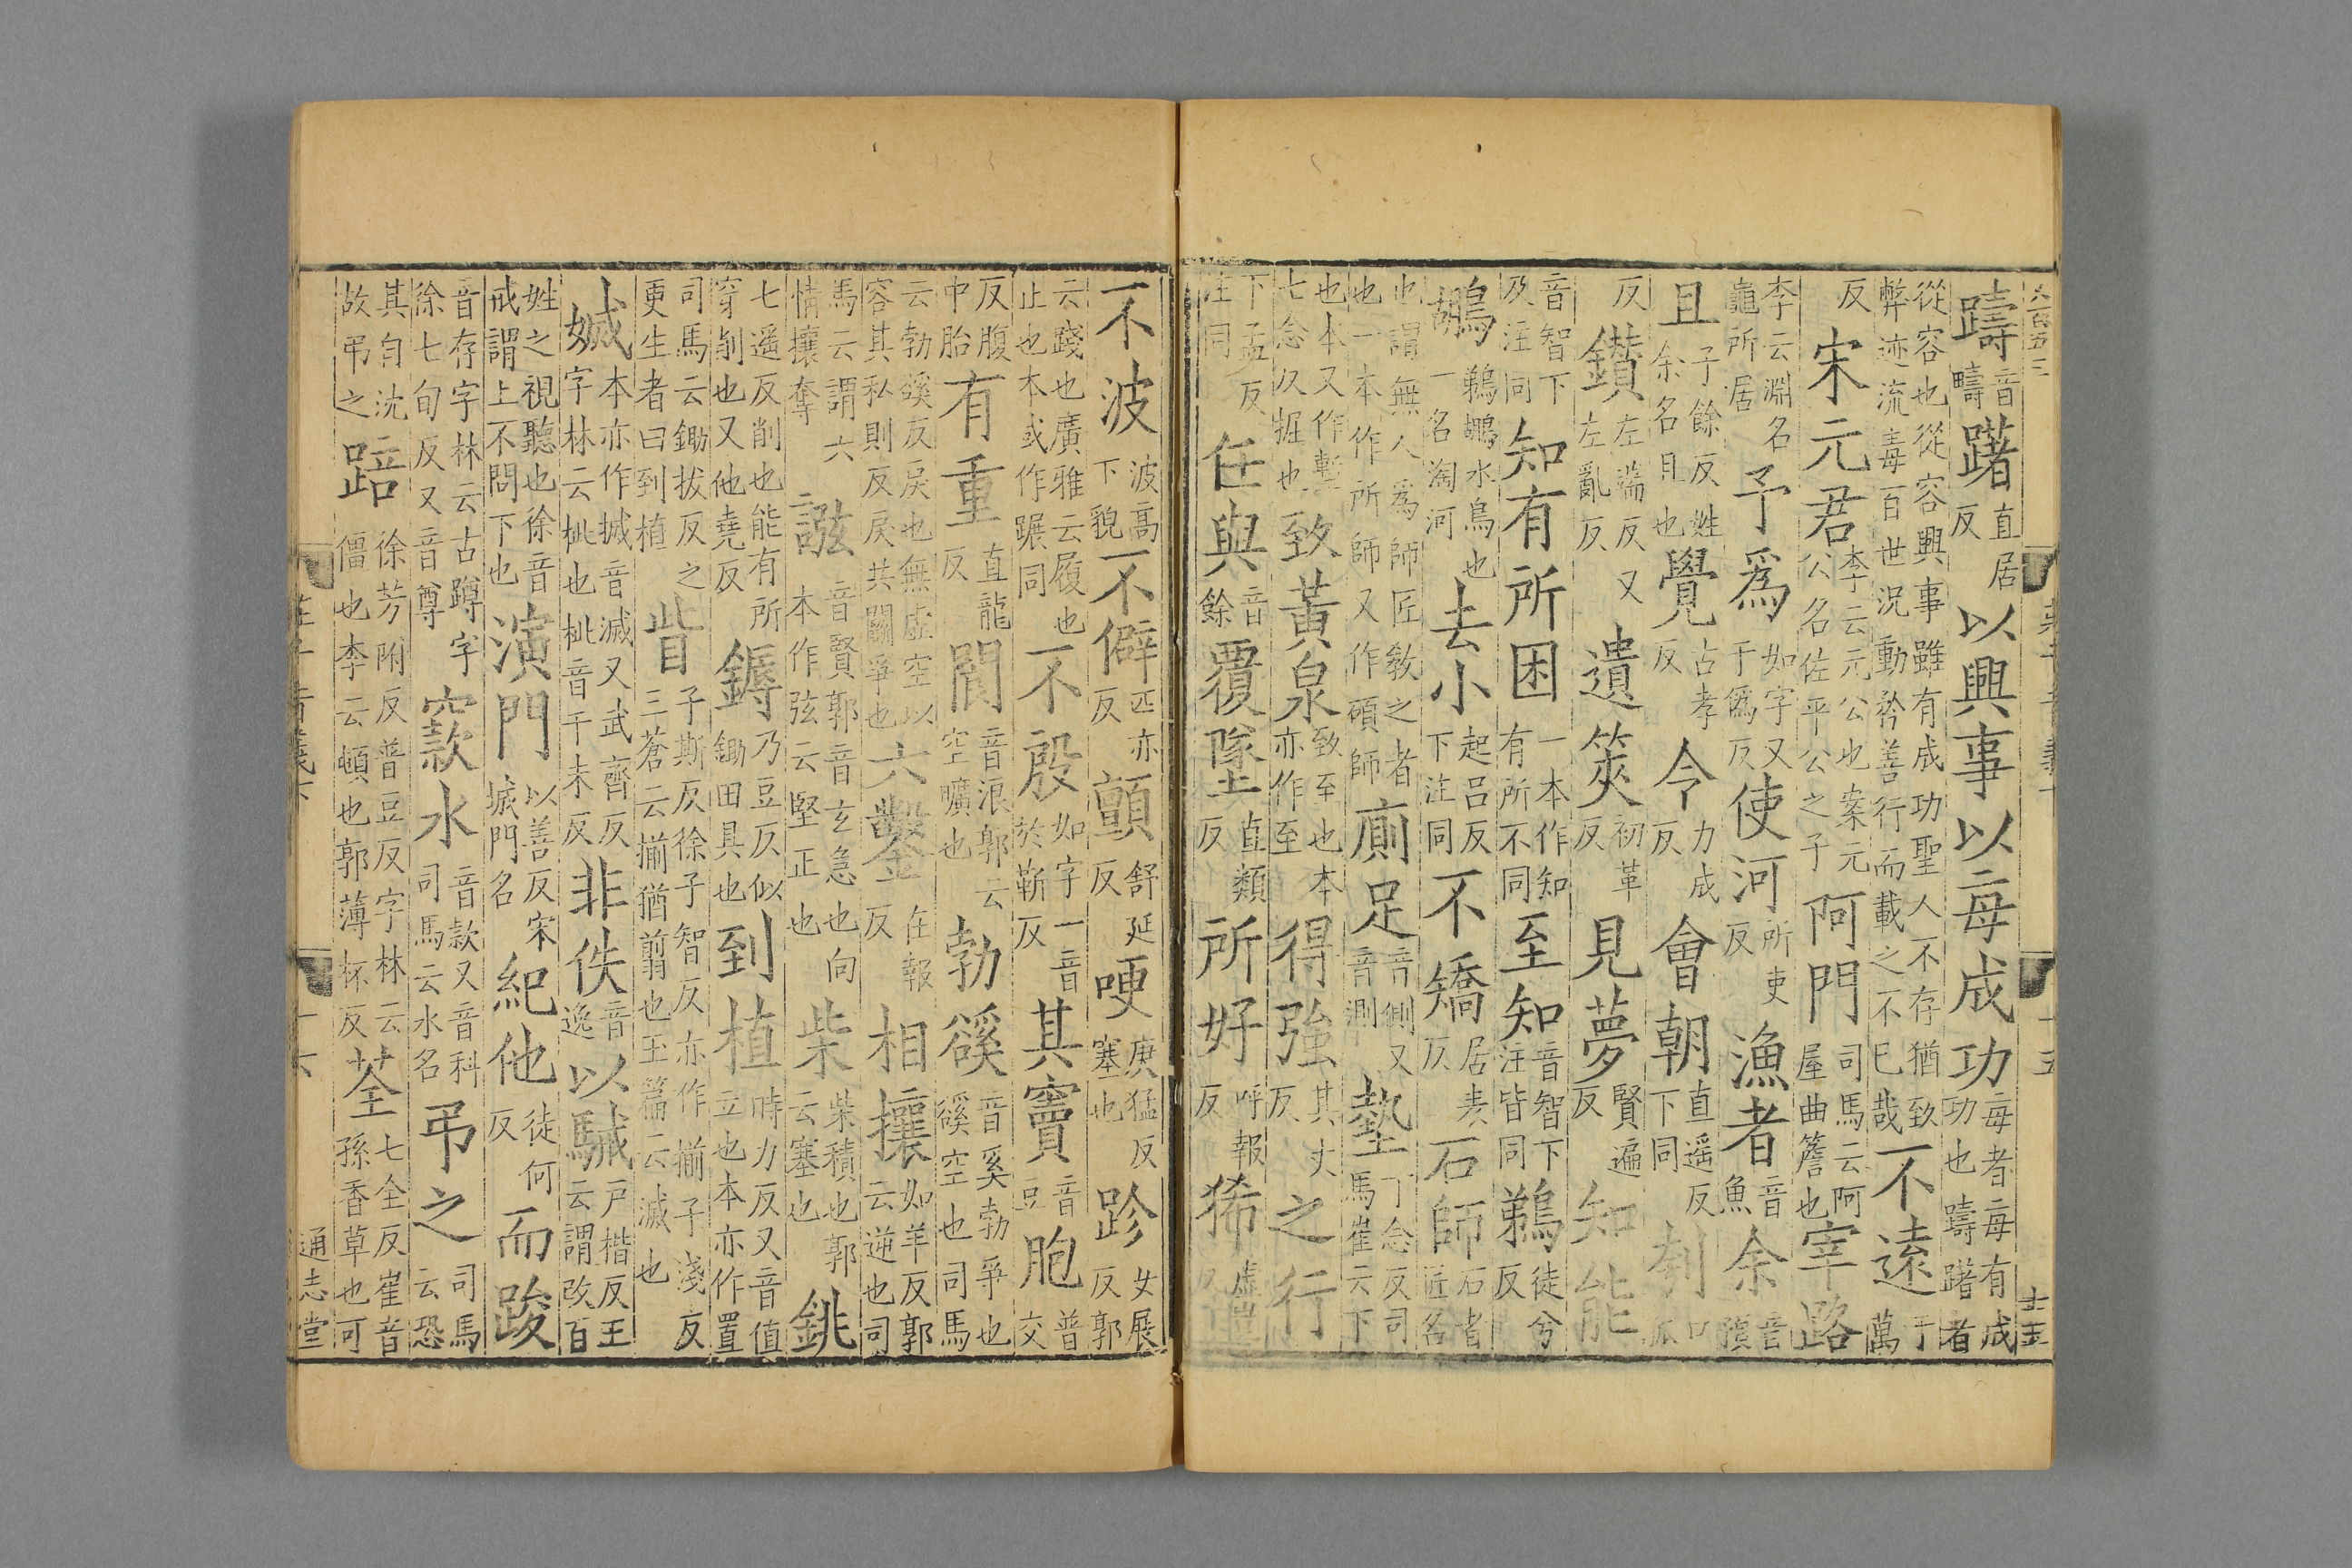 六百五三 莊子音義下 十五 士玉
躊音疇躇直居反以興事以每成功每者每有成功也躊躇者
從容也從容興事雖有成功聖人不存猶致弊迹流毒百世況動矜善行而載之不已哉不遠于萬
反宋元君李云元公也案元公名佐平公之子阿門司馬云阿屋曲簷也宰路
李云淵名龜所居予爲如字又于僞反使河所吏反漁者音魚余音
且子餘反姓余名且也覺占孝反令力成反會朝直遥反下同刳口孤
反鑽左端反又左亂反遺筴初革反見夢賢遍反知能
音智下及注同知有所困一本作知有所不同至知音智下注皆同鵜徒兮反
鶘鵜鶘水鳥也一名淘河去小起吕反下注同不矯居表反石師石者匠名
也謂無人爲師匠敎之者也一本作所師又作碩師廁足音側又音測墊丁念反司馬崔云下
也本又作塹七念反掘也致黃泉致至也本亦作至得強其丈反之行
下孟反注同任與音餘覆墜直類反所好呼報反狶虛豈反
不波波高下貌不僻匹亦反顫舒延反哽庚猛反塞也跈女展反郭
云踐也廣雅云履也止也本或作蹍同不殷如字一音於靳反其竇音豆胞普交
反腹中胎有重直龍反閬音浪郭云空曠也勃豀音奚勃爭也豀空也司馬
云勃豀反戾也無虛空以容其私則反戾共鬭爭也六鑿在報反相攘如羊反郭云逆也司
馬云謂六情攘奪誸音賢郭音玄急也向本作弦云堅正也柴柴積也郭云塞也銚
七遥反削也能有所穿削也又他堯反鎒乃豆反似鋤田具也到植時力反又音値立也本亦作置
司馬云鋤拔反之更生者曰到植眥子斯反徐子智反亦作揃子淺反三蒼云揃猶翦也玉篇云滅也
媙本亦作搣音滅又武齊反字林云批也批音千米反非佚音逸以駴戶楷反王云謂改百
姓之視聽也徐音戒謂上不問下也演門以善反宋城門名紀他徒何反而踆
音存字林云古蹲字徐七旬反又音尊窾水音款又音科司馬云水名弔之司馬云恐
其自沈故弔之踣徐芳附反普豆反字林云僵也李云頓也郭薄杯反荃七全反崔音孫香草也可
莊子音義下 十六 通志堂